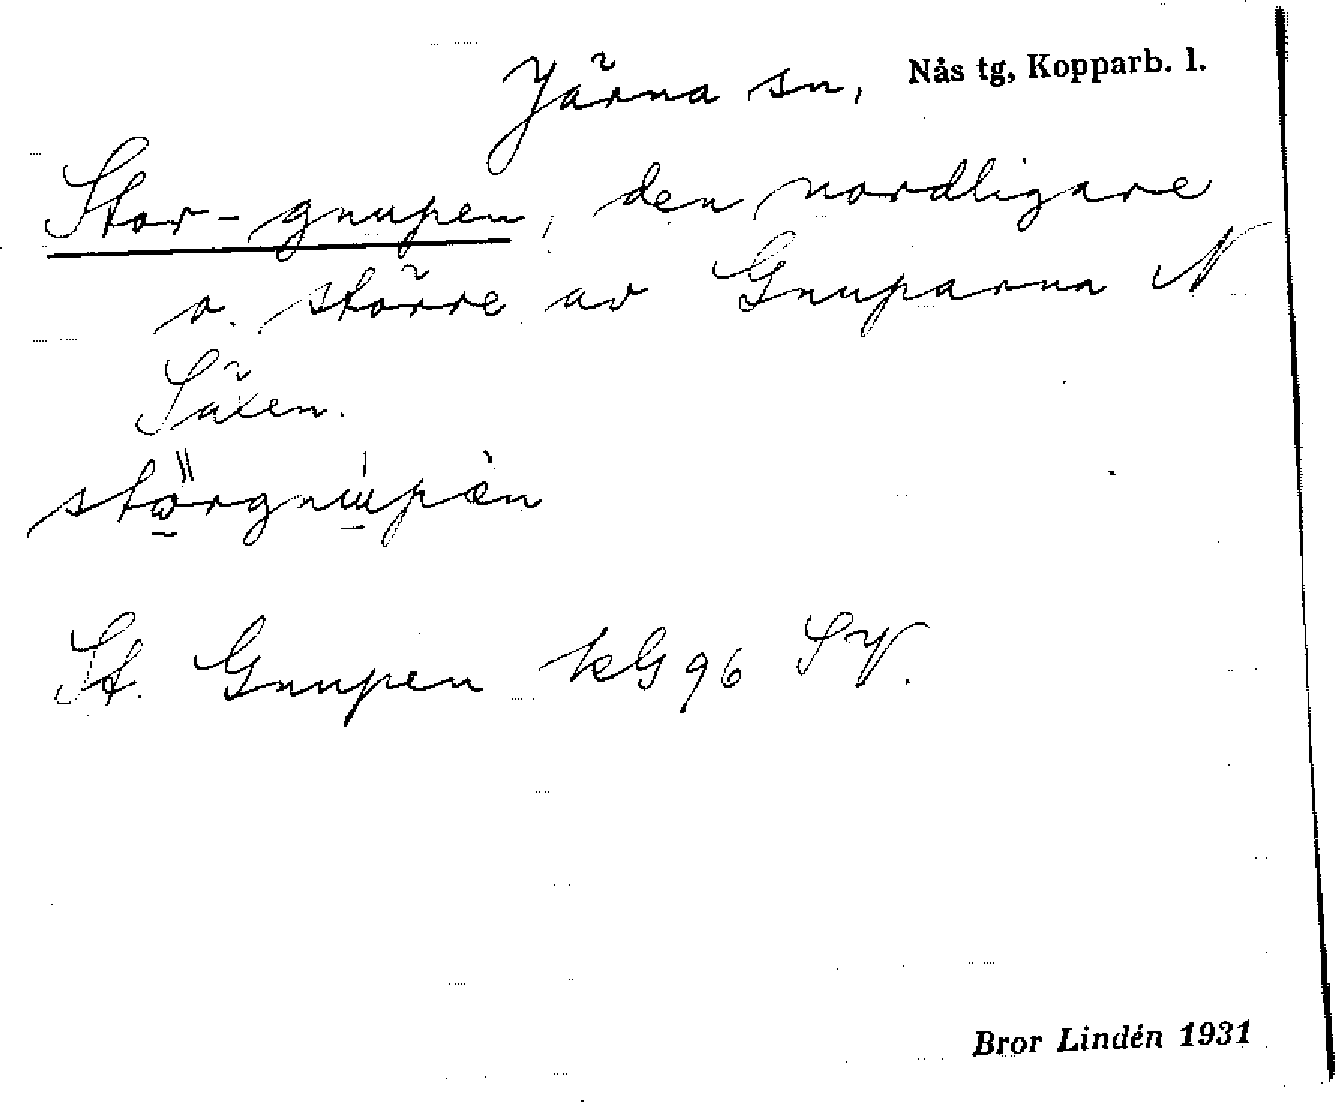 Järna sn, Nås tg, Kopparb. l.
Stor-gnupen, den nordligare
o. större av Gnuparna N
Säxen.
St. Gnupen kG 96 SV.
Bror Lindén 1931